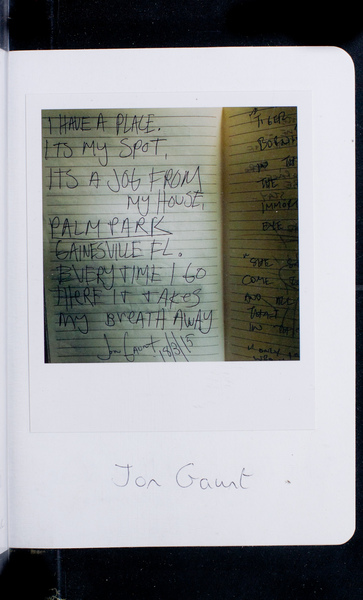 I HAVE A PLACE.
ITS MY SPOT,
ITS A JOG FROM
MY HOUSE,
PALM PARK
GAINESVILLE FL.
EVERYTIME I GO
THERE IT TAKES
MY BREATH AWAY
Jon Gaunt, 8/3/15
"TIGER
BORN
IN
THE
IMMOR
EYE
"SHE
COME
AND ALL
THAT
IN
Jon Gaunt.